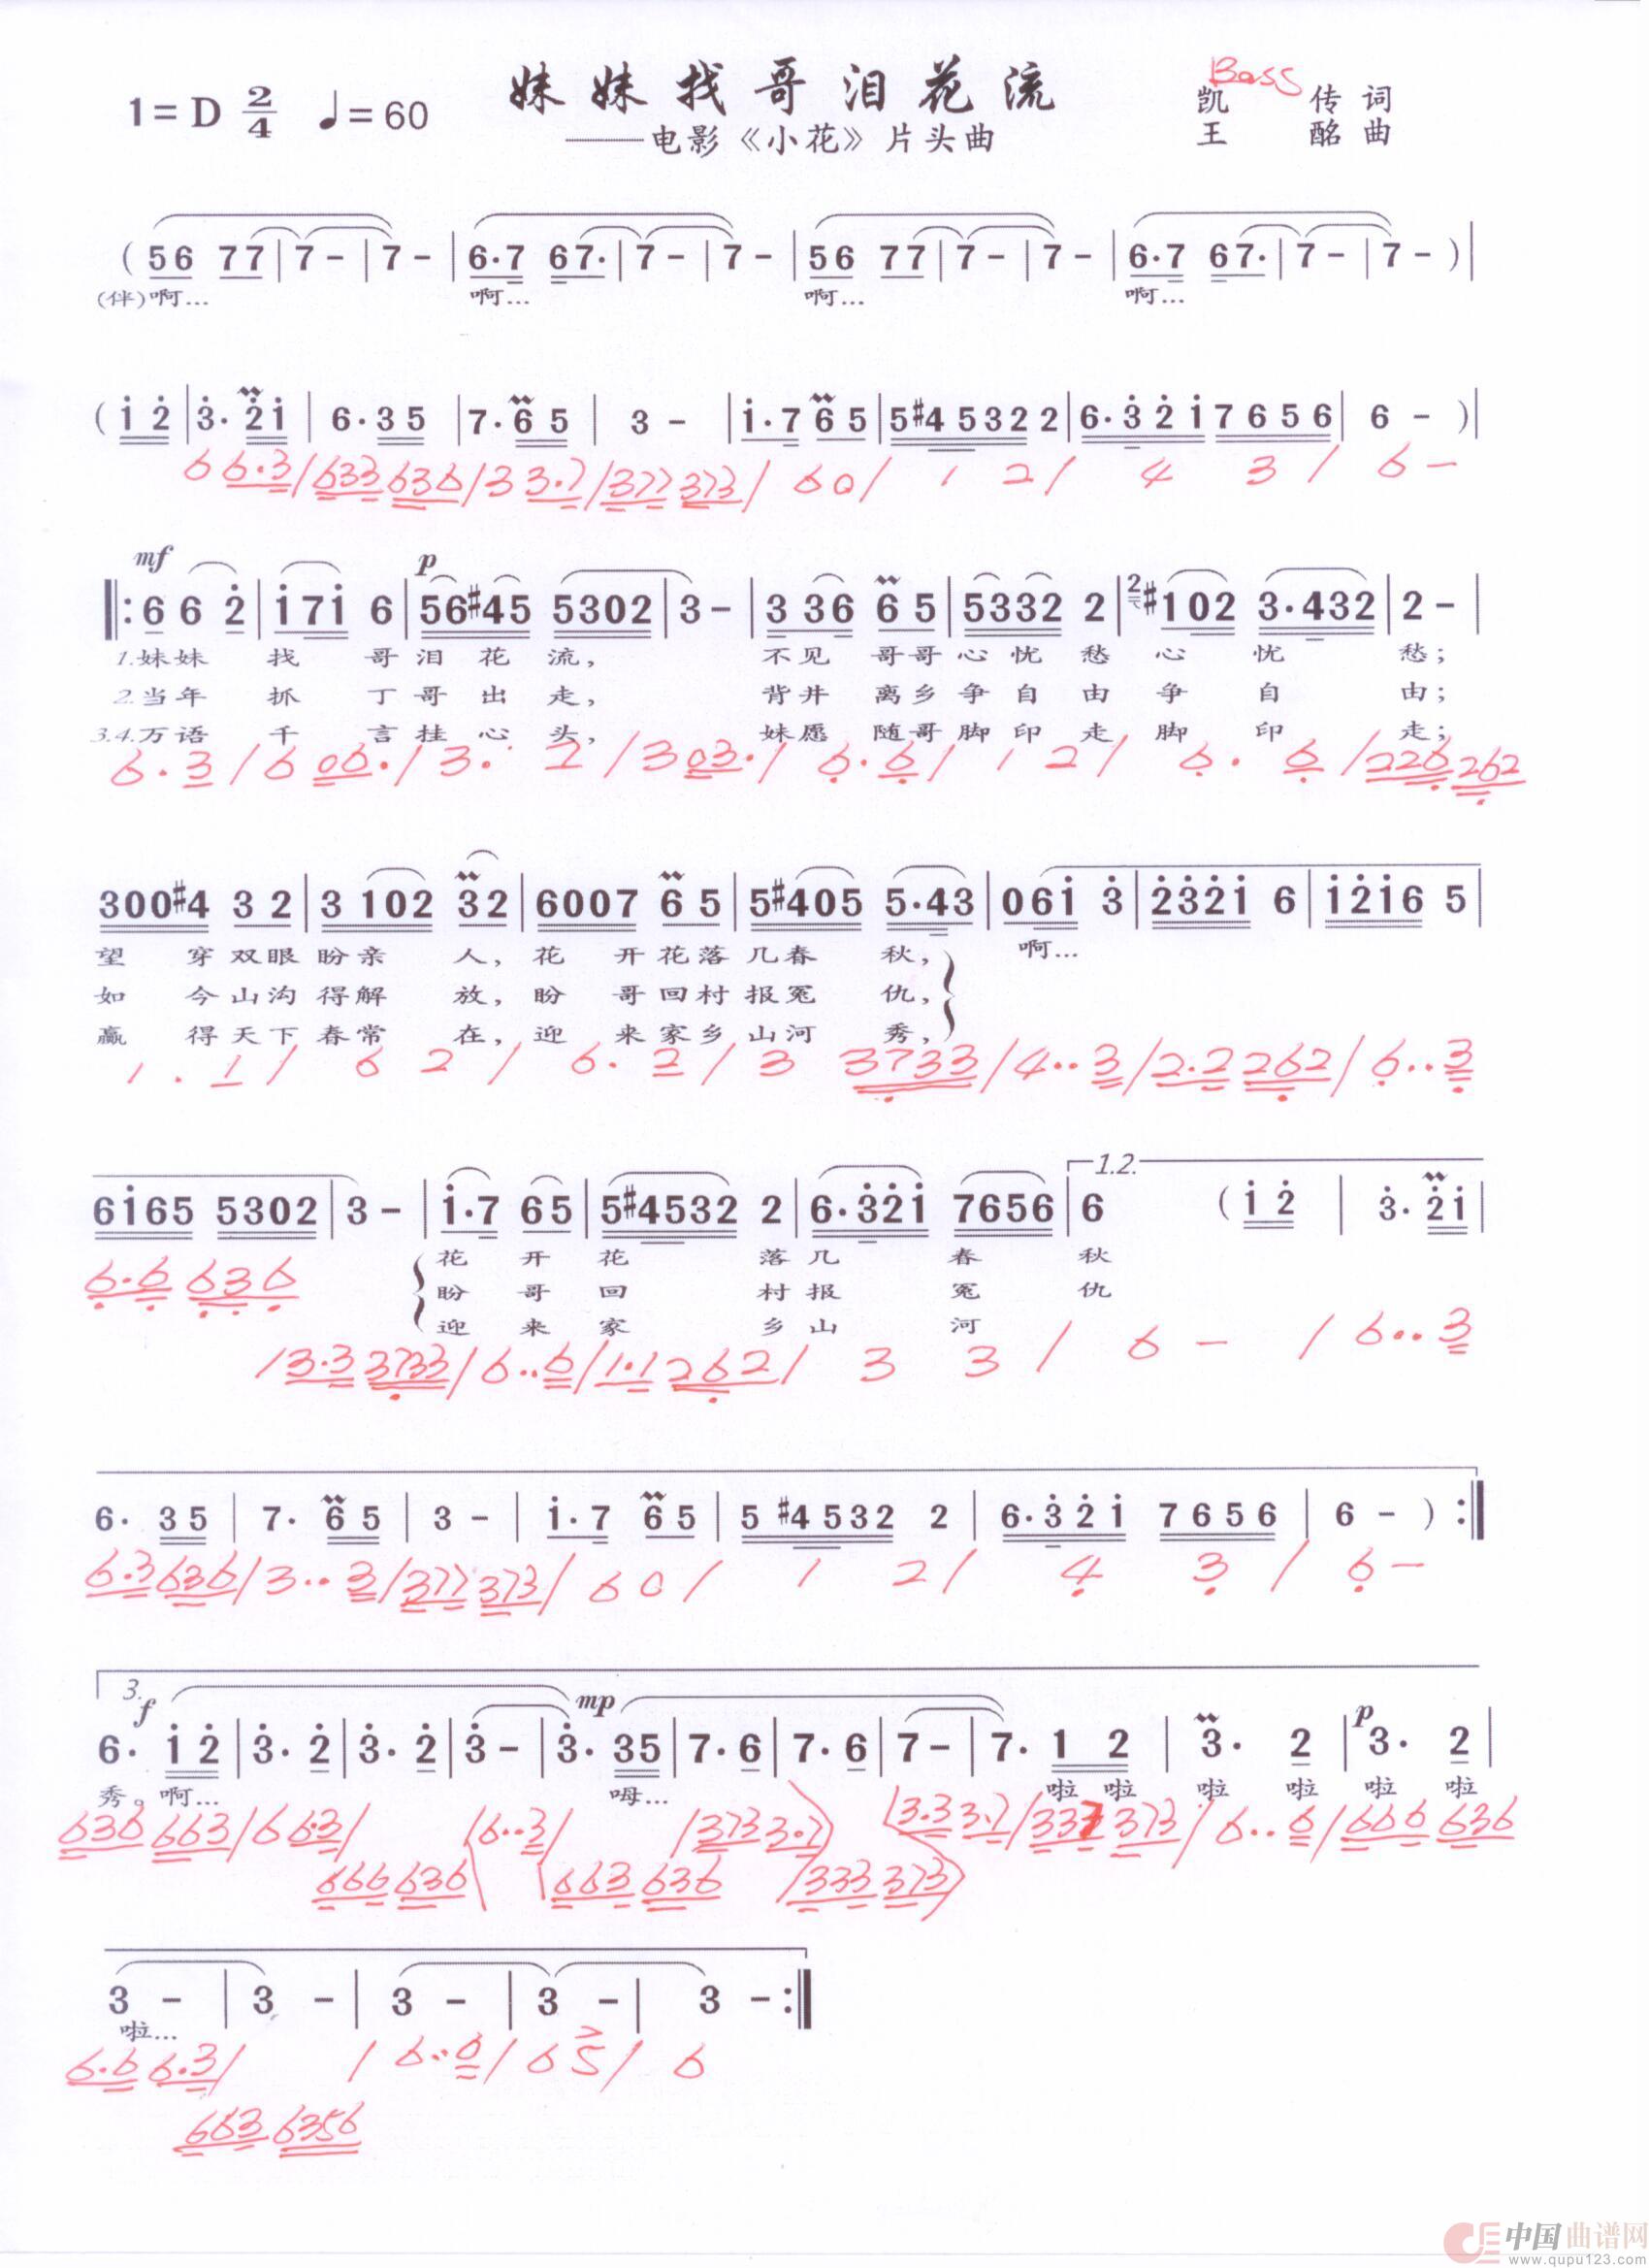 妹妹找哥泪花流
Bass
1=D 2/4 ♩=60
——电影《小花》片头曲
凯 传 词
王 酩 曲
( 56 77 | 7 - | 7 - | 6·7 67· | 7 - | 7 - | 56 77 | 7 - | 7 - | 6·7 67· | 7 - | 7 - ) |
(伴)啊… 啊… 啊… 啊…
( i 2 | 3· 2i | 6·35 | 7·65 | 3 - | i·7 65 | 5#4532 2 | 6·32i 7656 | 6 - ) |
6 6·3 / 633 636 / 3 3·7 / 377 373 / 60 / 1 2 / 4 3 / 6 -
mf p
‖: 6 6 2 | i7i 6 | 56#45 5302 | 3 - | 3 36 65 | 5332 2 | 2 #102 3·432 | 2 - |
1.妹妹 找 哥泪 花 流, 不见 哥哥心忧 愁 心 忧 愁;
2.当年 抓 丁哥 出 走, 背井 离乡争自 由 争 自 由;
3.4.万语 千 言挂 心 头, 妹愿 随哥脚印 走 脚 印 走;
6·3 / 6 006· / 3· 2 / 3 03· / 6·6 / 1 2 / 6· 6 / 226 262
300#4 32 | 3 102 32 | 6007 65 | 5#405 5·43 | 06i 3 | 232i 6 | i2i6 5 |
望 穿双眼盼亲 人,花 开花落几春 秋, 啊…
如 今山沟得解 放,盼 哥回村报冤 仇,
赢 得天下春常 在,迎 来家乡山河 秀,
1·1 / 6 2 / 6·2 / 3 3733 / 4··3 / 2·2 262 / 6··3
6i65 5302 | 3 - | i·7 65 | 5#4532 2 | 6·32i 7656 | 1.2. 6 ( i2 | 3·2i |
花 开 花 落几 春 秋
盼 哥 回 村报 冤 仇
迎 来 家 乡山 河
6·6 636
/ 3·3 3733 / 6··6 / 1·1 262 / 3 3 / 6 - / 6··3
6· 35 | 7· 65 | 3 - | i·7 65 | 5#4532 2 | 6·32i 7656 | 6 - ) :‖
6·3 636 / 3··3 / 377 373 / 60 / 1 2 / 4 3 / 6 -
3. f mp p
6· i2 | 3·2 | 3·2 | 3 - | 3· 35 | 7·6 | 7·6 | 7 - | 7· 12 | 3· 2 | 3· 2 |
秀。啊… 呣… 啦 啦 啦 啦 啦 啦
636 663 / 6 6·3 / 6··3 / / 373 3·7 3·3 3·7 / 337 373 / 6··6 / 666 636
666 636 663 636 / 333 373
3 - | 3 - | 3 - | 3 - | 3 - :‖
啦…
6·6 6·3 / / 6··6 / 6 5 / 6
663 6356
中国曲谱网
www.qupu123.com